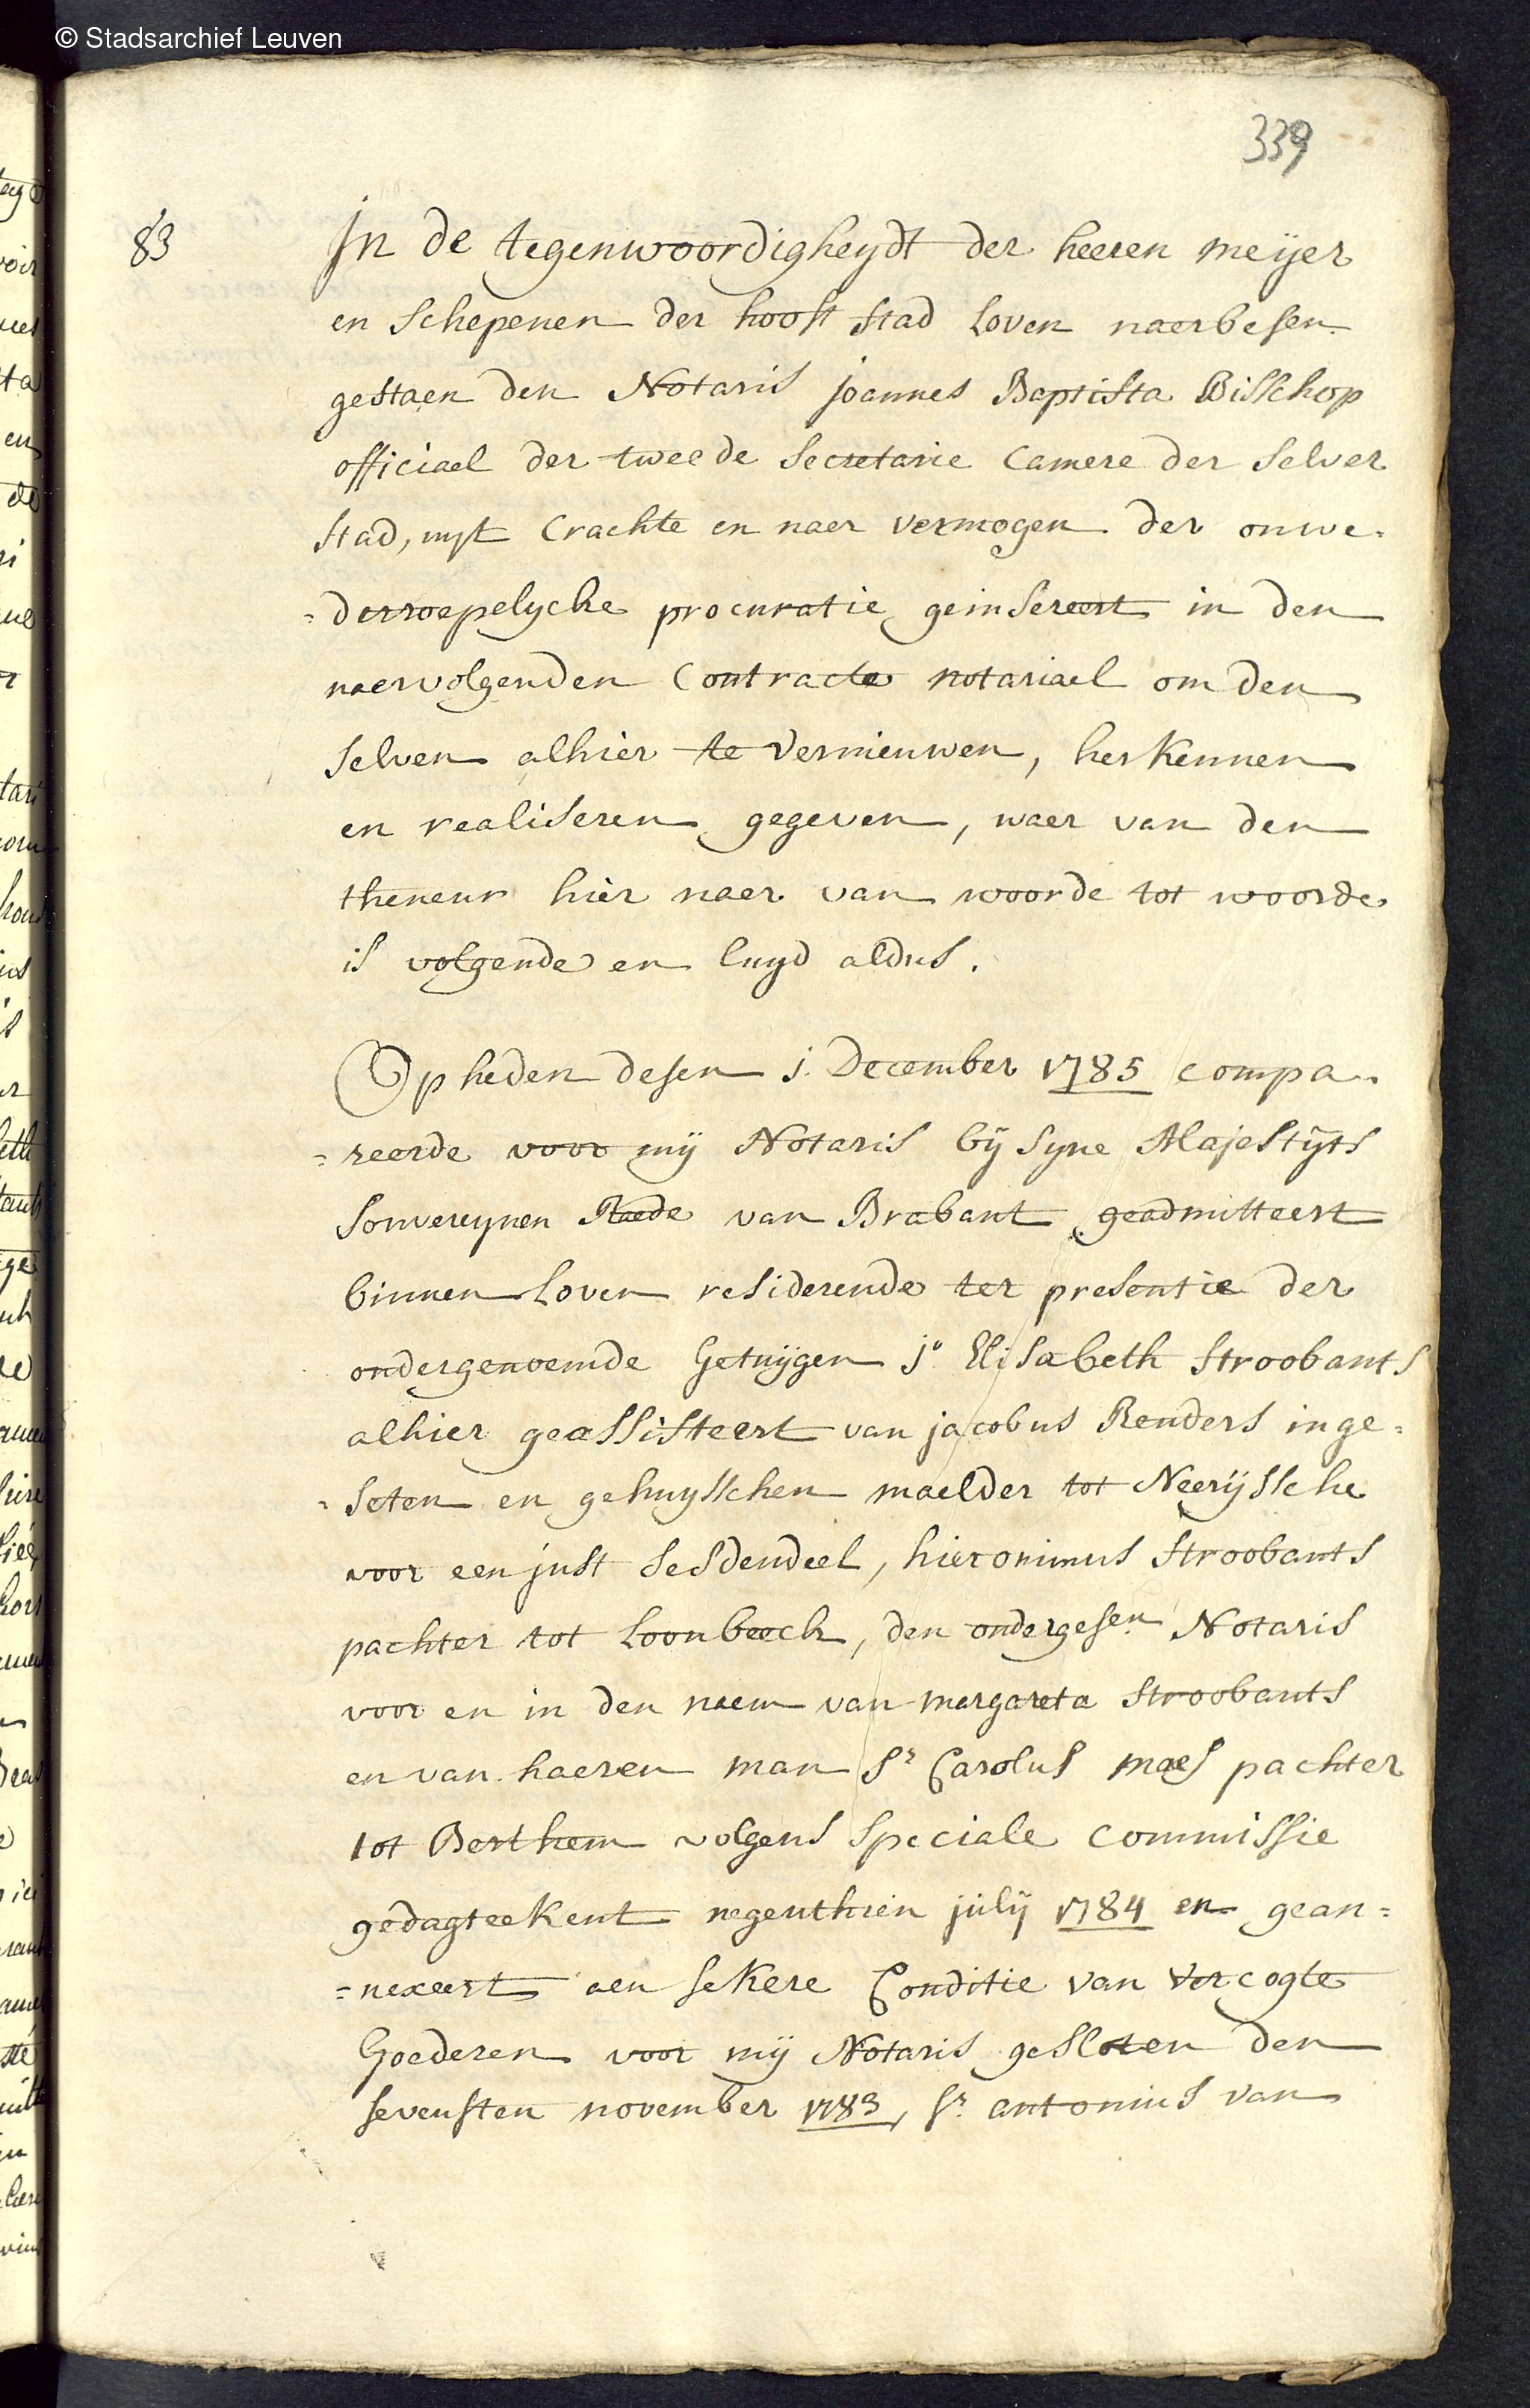 © Stadsarchief Leuven
339
83
In de tegenwoordigheydt der heeren meijer
en schepenen der hooft stad Loven naerbesen.
gestaen den Notaris joannes Baptista Bisschop
officiael der tweede secretarie Camere der selver
stad, uyt Crachte en naer vermogen der onwe-
=derroepelycke procuratie geinsereert in den
naervolgenden Contracte notariael om den
selven alhier te vernieuwen, herkennen
en realiseren gegeven, waer van den
theneur hier naer van woorde tot woorde
is volgende en luyd aldus.
Op heden desen j. December 1785 compa-
=reerde voor mij Notaris bij syne Majestyts
souvereynen Raede van Brabant geadmitteert
binnen Loven residerende ter presentie der
ondergenoemde Getuijgen jo. Elisabeth Stroobants
alhier geassisteert van jacobus Renders inge=
=seten en gehuysschen maelder tot Neerijssche
voor een just sesdendeel, hieronimus Stroobants
pachter tot Loonbeeck, den ondergesen. Notaris
voor en in den naem van margareta Stroobants
en van haeren man Sr Carolus maes pachter
tot Berthem volgens speciale commissie
gedagteekent negenthien julij 1784 en gean=
=nexeert aen sekere Conditie van vercogte
Goederen voor mij Notaris gesloten den
sevensten november 1783, Sr. antonius van